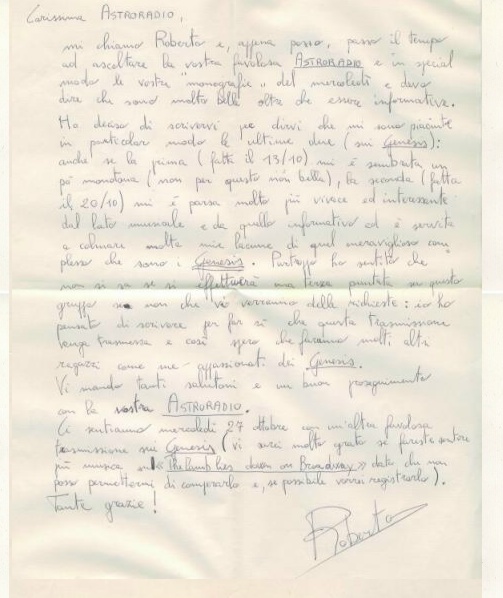 Carissima ASTRORADIO,
mi chiamo Roberto e, appena posso, passo il tempo
ad ascoltare la vostra favolosa ASTRORADIO e in special
modo le vostre "monografie" del mercoledì e devo
dire che sono molto belle oltre che essere informative.
Ho deciso di scrivervi per dirvi che mi sono piaciute
in particolar modo le ultime due (sui Genesis):
anche se la prima (fatta il 13/10) mi è sembrata un
pò monotona (non per questo non bella), la seconda (fatta
il 20/10) mi è parsa molto più vivace ed interessante
dal lato musicale e da quello informativo ed è servita
a colmare molte mie lacune di quel meraviglioso com
plesso che sono i Genesis. Purtroppo ho sentito che
non si sa se si effettuerà una terza puntata su questo
gruppo se non che vi verranno delle richieste: io ho
pensato di scrivere per far sì che questa trasmissione
venga trasmessa e così spero che faranno molti altri
ragazzi come me appassionati dei Genesis.
Vi mando tanti salutoni e un buon proseguimento
con la vostra ASTRORADIO.
Ci sentiremo mercoledì 27 ottobre con un'altra favolosa
trasmissione sui Genesis (vi sarei molto grato se fareste sentire
più musica su « The lamb lies down on Broadway » dato che non
posso permettermi di comprarlo e, se possibile vorrei registrarlo).
Tante grazie!
Roberto